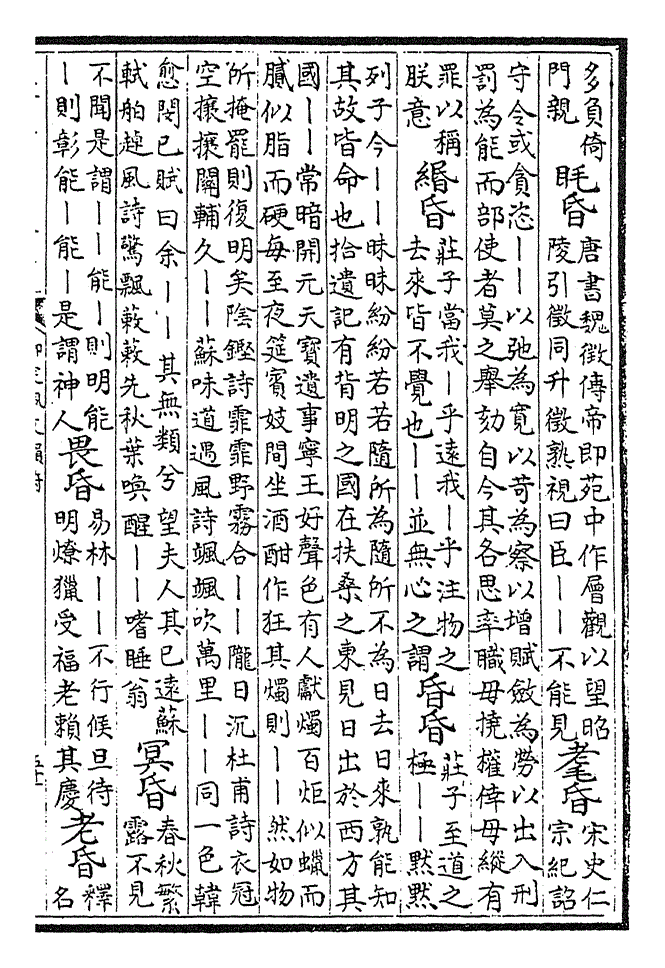 多負倚
門親
眊昏
唐書魏徵傳帝即苑中作層觀以望昭
陵引徵同升徵熟視曰臣——不能見
耄昏
宋史仁
宗紀詔
守令或貪恣——以弛為寬以苛為察以增賦斂為勞以出入刑
罰為能而部使者莫之舉劾自今其各思率職毋撓權倖毋縱有
罪以稱
朕意
緡昏
莊子當我—乎遠我—乎注物之
去來皆不覺也——並無心之謂
昏昏
莊子至道之
極——黙黙
列子今——昧昧紛紛若若隨所為隨所不為日去日來孰能知
其故皆命也拾遺記有背明之國在扶桑之東見日出於西方其
國——常暗開元天寶遺事寧王好聲色有人獻燭百炬似蠟而
膩似脂而硬每至夜筵賓妓間坐酒酣作狂其燭則——然如物
所掩罷則復明矣陰鏗詩霏霏野霧合——隴日沉杜甫詩衣冠
空攘攘關輔久——蘇味道遇風詩颯颯吹萬里——同一色韓
愈閔已賦曰余——其無類兮望夫人其已遠蘇
軾舶趠風詩驚飄蔌蔌先秋葉喚醒——嗜睡翁
冥昏
春秋繁
露不見
不聞是謂——能—則明能
—則彰能—能—是謂神人
畏昏
易林——不行候旦待
明燎獵受福老賴其慶
老昏
釋
名